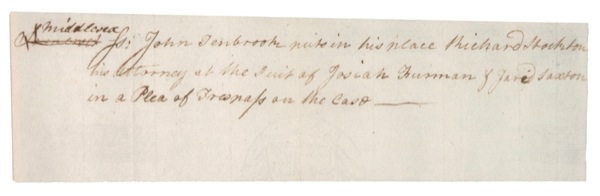 Middlesex
Ss: John Tenbrook puts in his place Richard Stockton
his attorney at the Suit of Josiah Furman & Jared Saxton
in a Plea of Trespass on the Case